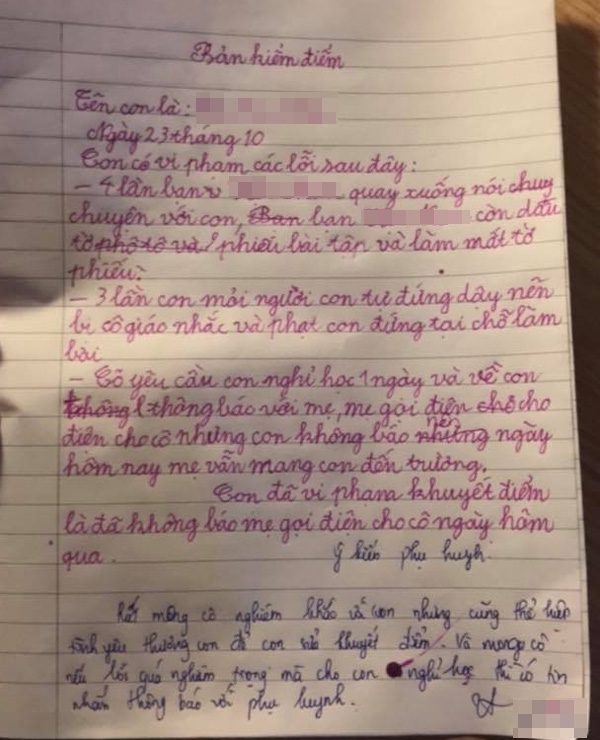 Bản kiểm điểm
Tên con là:
Ngày 23 tháng 10
Con có vi phạm các lỗi sau đây:
- 4 lần bạn quay xuống nói chuy
chuyện với con, Ban bạn còn dấu
tờ phô tô và phiếu bài tập và làm mất tờ
phiếu.
- 3 lần con mỏi người con tự đứng dậy nên
bị cô giáo nhắc và phạt con đứng tại chỗ làm
bài
- Cô yêu cầu con nghỉ học 1 ngày và về con
không thông báo với mẹ, mẹ gọi điện chô cho
điên cho cô nhưng con không bảo những nên ngày
hôm nay mẹ vẫn mang con đến trường.
Con đã vi phạm khuyết điểm
là đã không báo mẹ gọi điện cho cô ngày hôm
qua.
Ý kiến phụ huynh.
Rất mong cô nghiêm khắc với con nhưng cũng thể hiện
tình yêu thương con để con sửa khuyết điểm. Và mong cô
nếu lỗi quá nghiêm trọng mà cho con nghỉ học thì cô tin
nhắn thông báo với phụ huynh.